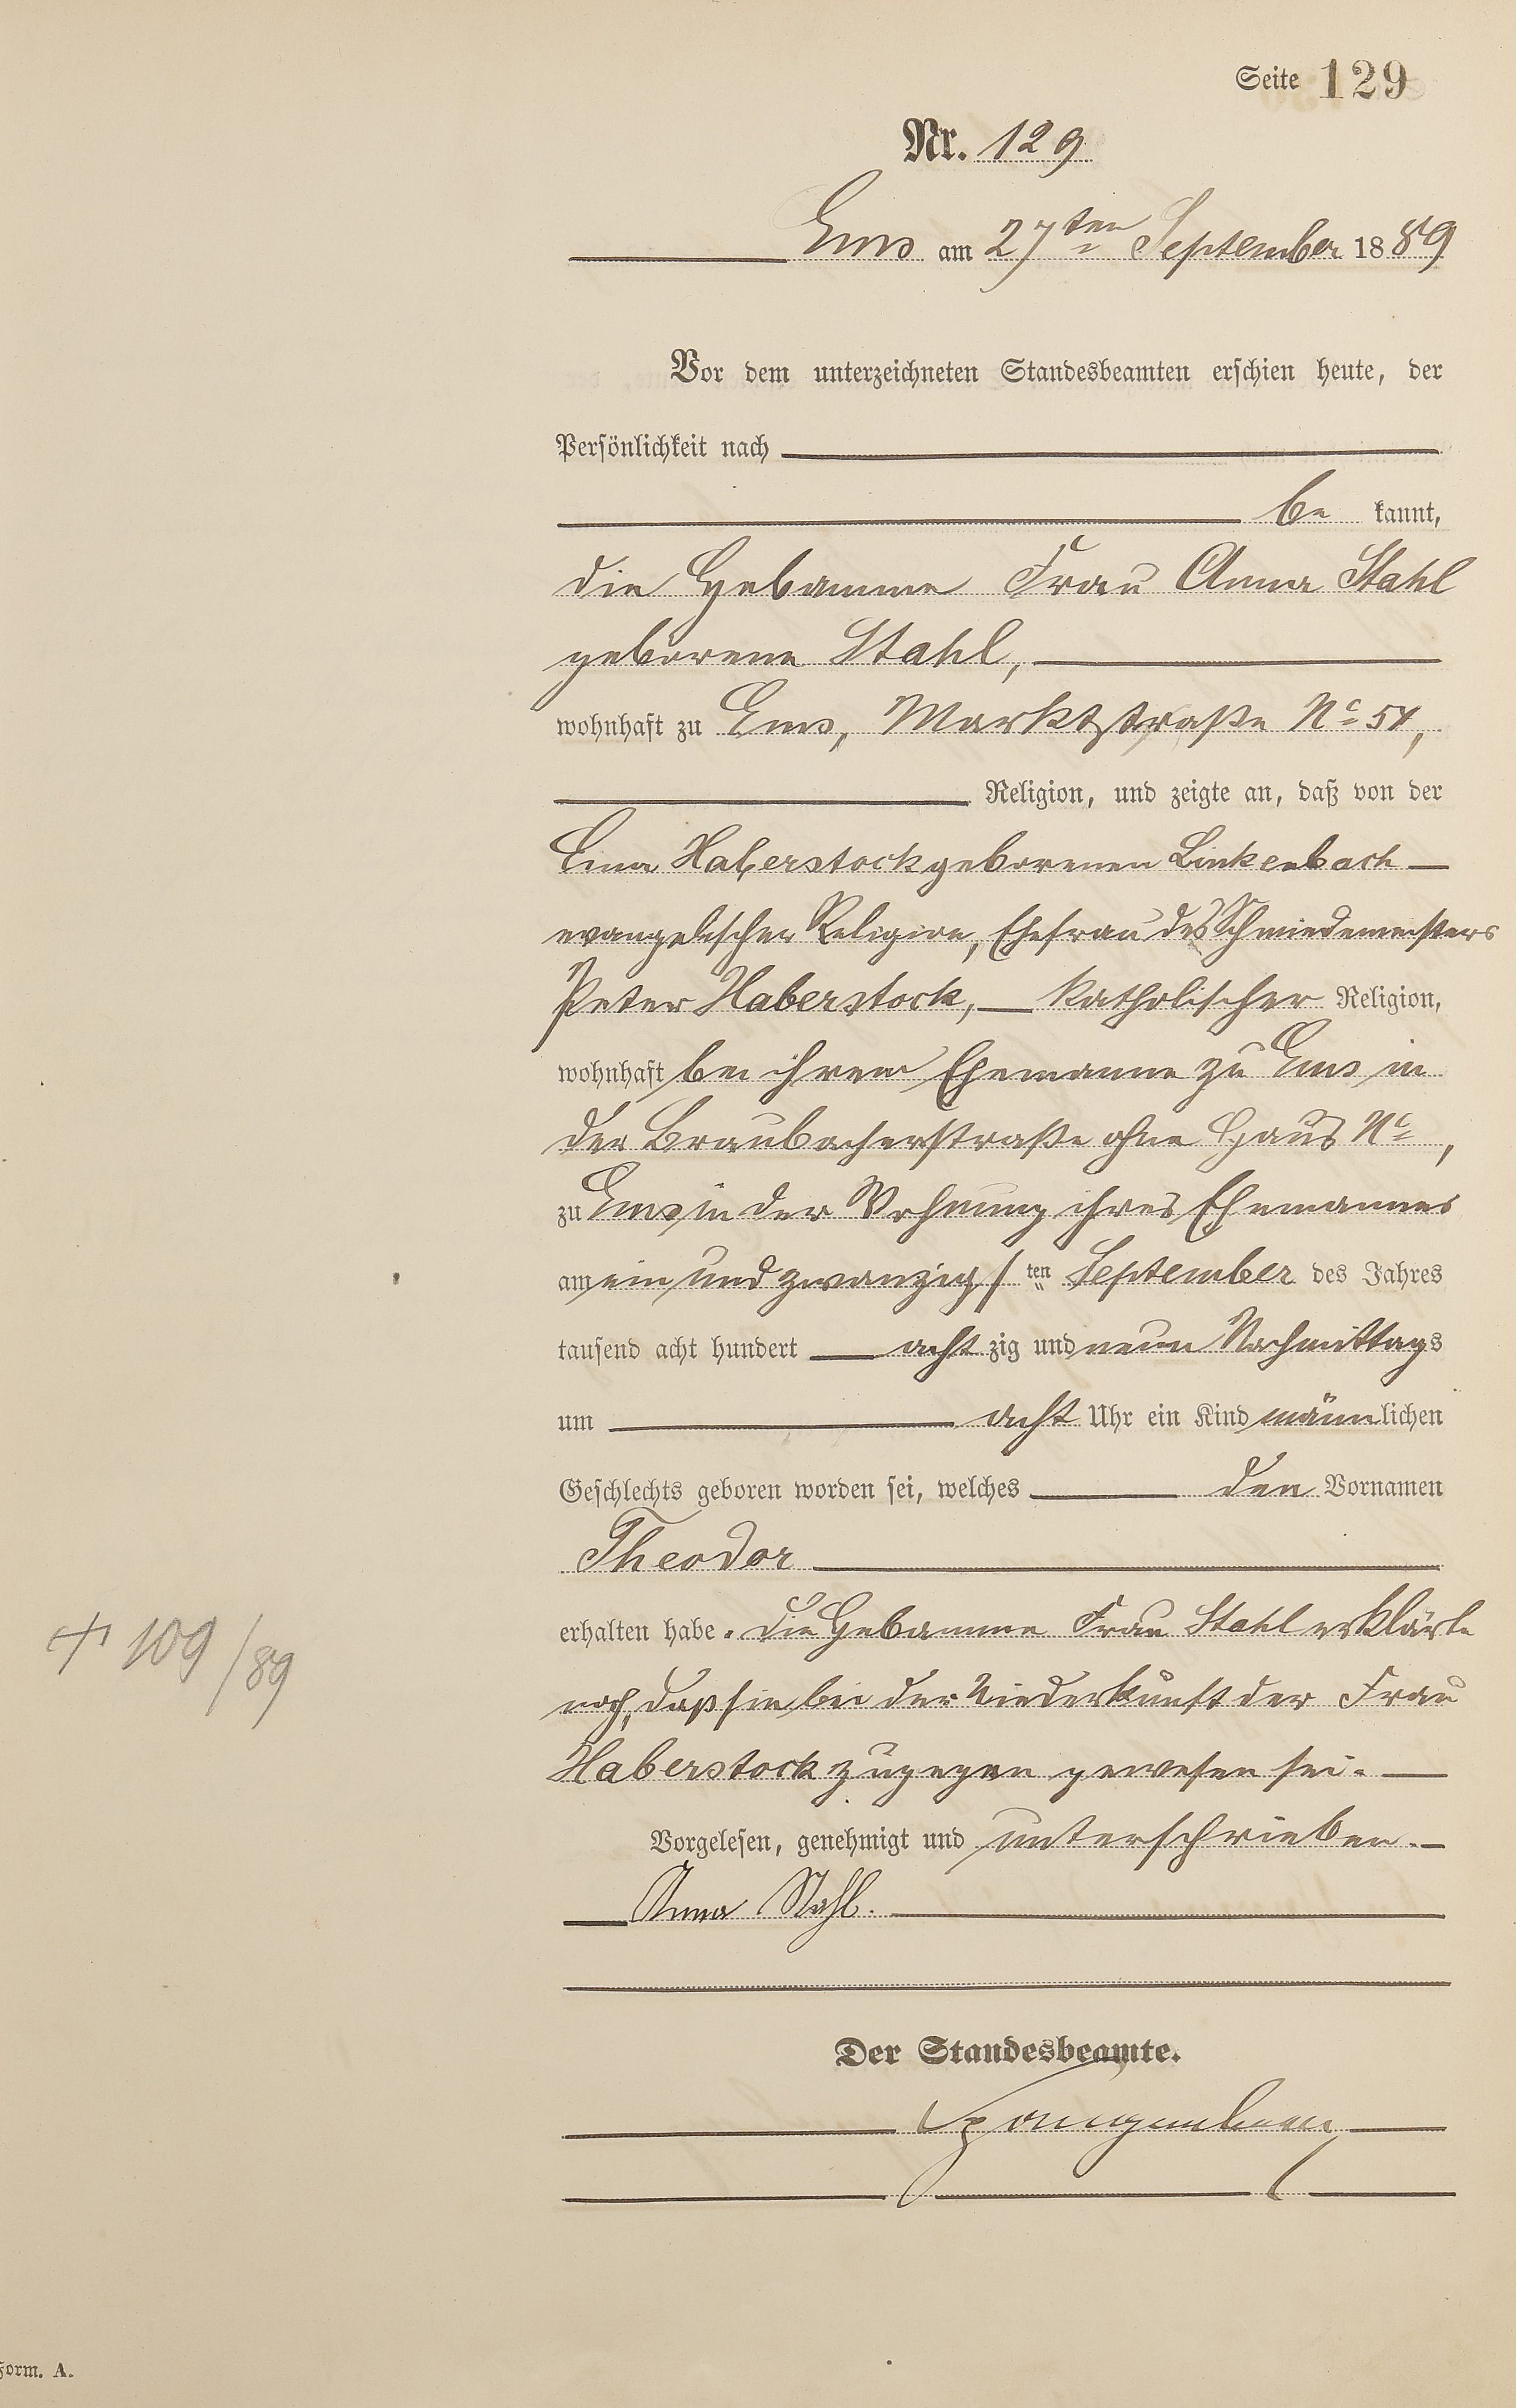 Seite 129
Nr. 129
Ems am 27ten September 1889
Vor dem unterzeichneten Standesbeamten erschien heute, der
Persönlichkeit nach
be kannt,
die Hebamme Frau Anna Stahl
geborene Stahl,
wohnhaft zu Ems, Marktstraße No 54,
Religion, und zeigte an, daß von der
Lina Haberstock geborenen Linkenbach
evangelischer Religion, Ehefrau des Schmiedemeisters
Peter Haberstock, katholischer Religion,
wohnhaft bei ihrem Ehemanne zu Ems in
der Braubacherstraße ohne Haus No,
zu Ems in der Wohnung ihres Ehemannes
am ein und zwanzigsten September des Jahres
tausend acht hundert achtzig und neun Nachmittags
um acht Uhr ein Kind männlichen
Geschlechts geboren worden sei, welches den Vornamen
Theodor
erhalten habe. Die Hebamme Frau Stahl erklärte
noch, daß sie bei der Niederkunft der Frau
Haberstock zugegen gewesen sei.
Vorgelesen, genehmigt und unterschrieben.
Anna Stahl.
Der Standesbeamte.
+ 109/89
Form. A.